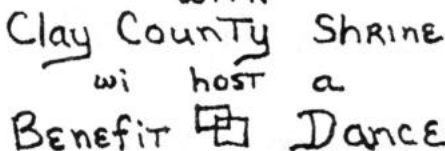 Clay County Shrine
wi host a
Benefit Dance